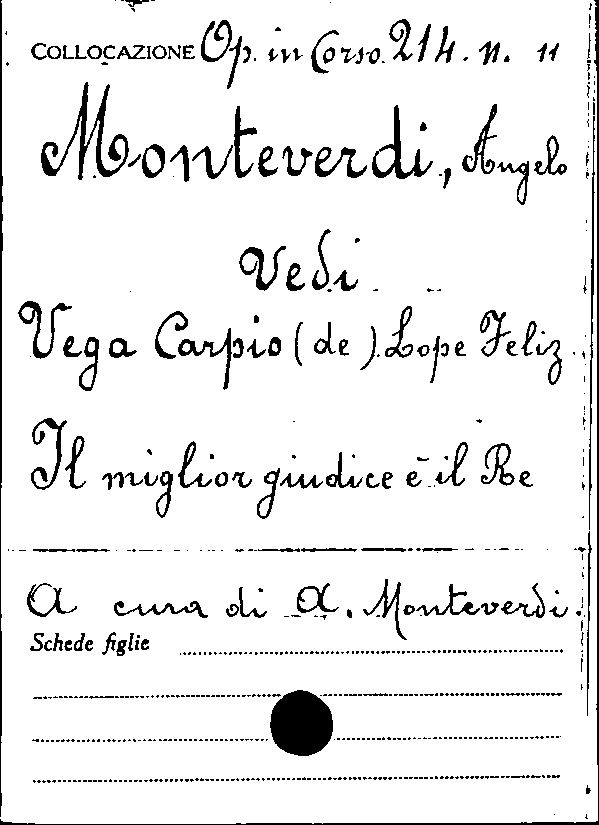 COLLOCAZIONE Op. in Corso. 214. n. 11
Monteverdi, Angelo
Vedi
Vega Carpio (de) Lope Feliz
Il miglior giudice è il Re
A cura di A. Monteverdi.
Schede figlie